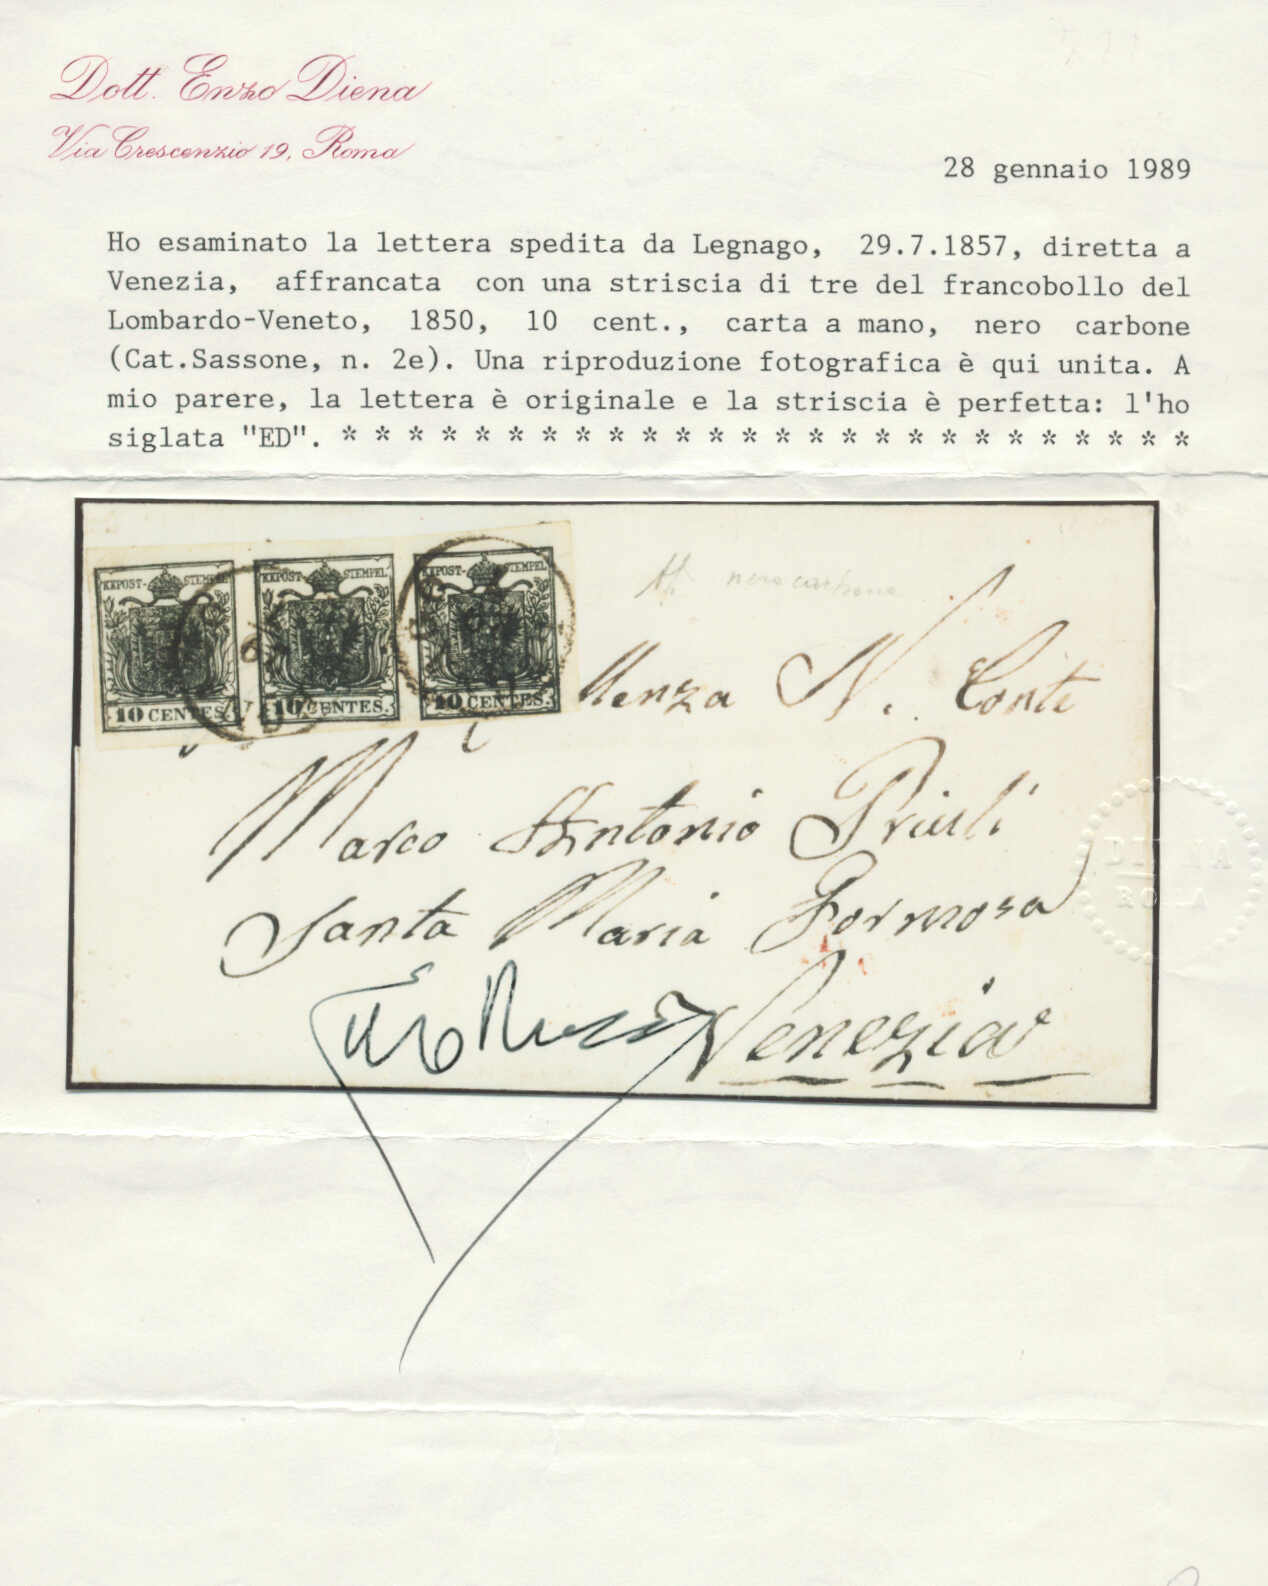 Dott. Enzo Diena
Via Crescenzio 19, Roma
28 gennaio 1989
Ho esaminato la lettera spedita da Legnago, 29.7.1857, diretta a
Venezia, affrancata con una striscia di tre del francobollo del
Lombardo-Veneto, 1850, 10 cent., carta a mano, nero carbone
(Cat.Sassone, n. 2e). Una riproduzione fotografica è qui unita. A
mio parere, la lettera è originale e la striscia è perfetta: l'ho
siglata "ED". * * * * * * * * * * * * * * * * * * * * * * * * * *
KKPOST- STEMPEL KKPOST- STEMPEL KKPOST- STEMPEL
10 CENTES. 10 CENTES. 10 CENTES.
nero carbone
N. Conte
Marco Antonio Priuli
Santa Maria Formosa
Venezia
DIENA
ROMA